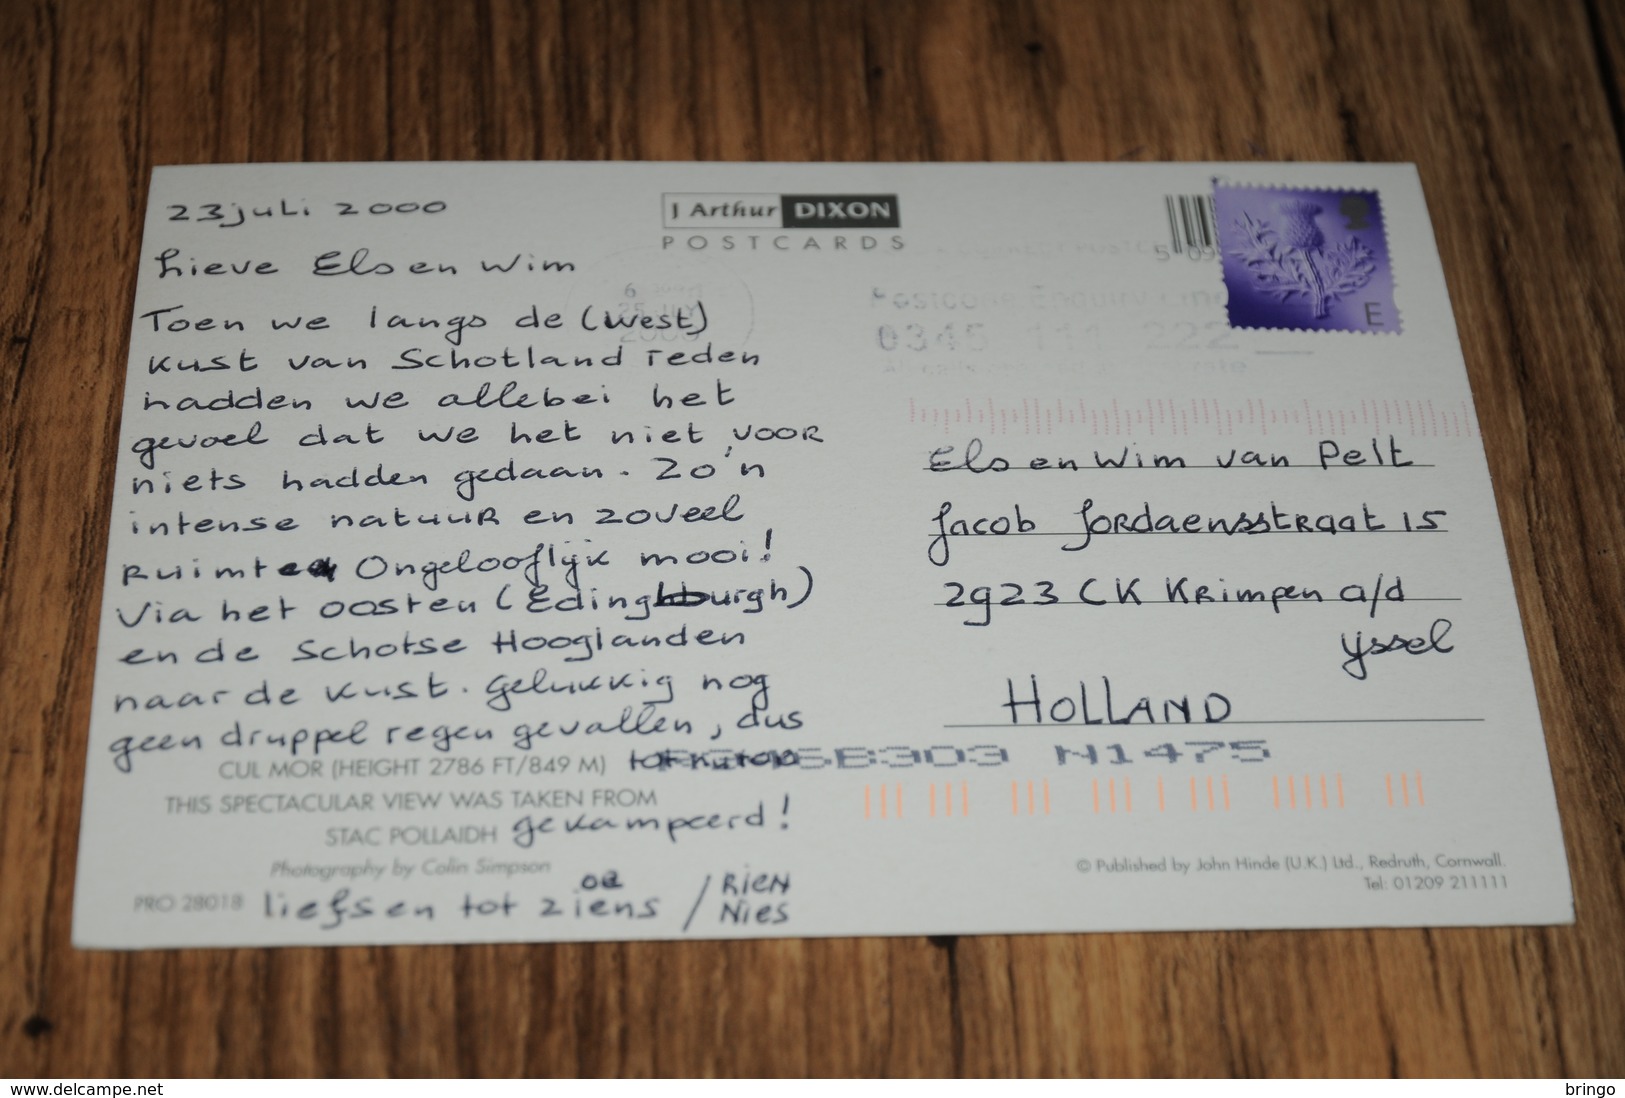 23 juli 2000
J Arthur DIXON
POSTCARDS
5 09
Lieve Els en Wim
Toen we langs de (west)
kust van Schotland reden
hadden we allebei het
gevoel dat we het niet voor
niets hadden gedaan. Zo'n
intense natuur en zoveel
Ruimte Ongelooflijk mooi!
Via het oosten (Edingburgh)
en de Schotse Hooglanden
naar de kust. Gelukkig nog
geen druppel regen gevallen, dus
tot nu toe
CUL MOR (HEIGHT 2786 FT/849 M)
THIS SPECTACULAR VIEW WAS TAKEN FROM
STAC POLLAIDH
gekampeerd!
Photography by Colin Simpson
PRO 28018
liefs en tot ziens / RIEN
Nies
E
25 JLY
2000
Postcode Enquiry
0345 111 222
Els en Wim van Pelt
Jacob Jordaensstraat 15
2923 CK Krimpen a/d
Yssel
HOLLAND
6B303 N1475
© Published by John Hinde (U.K.) Ltd., Redruth, Cornwall.
Tel: 01209 211111
delcampe.net
bringo